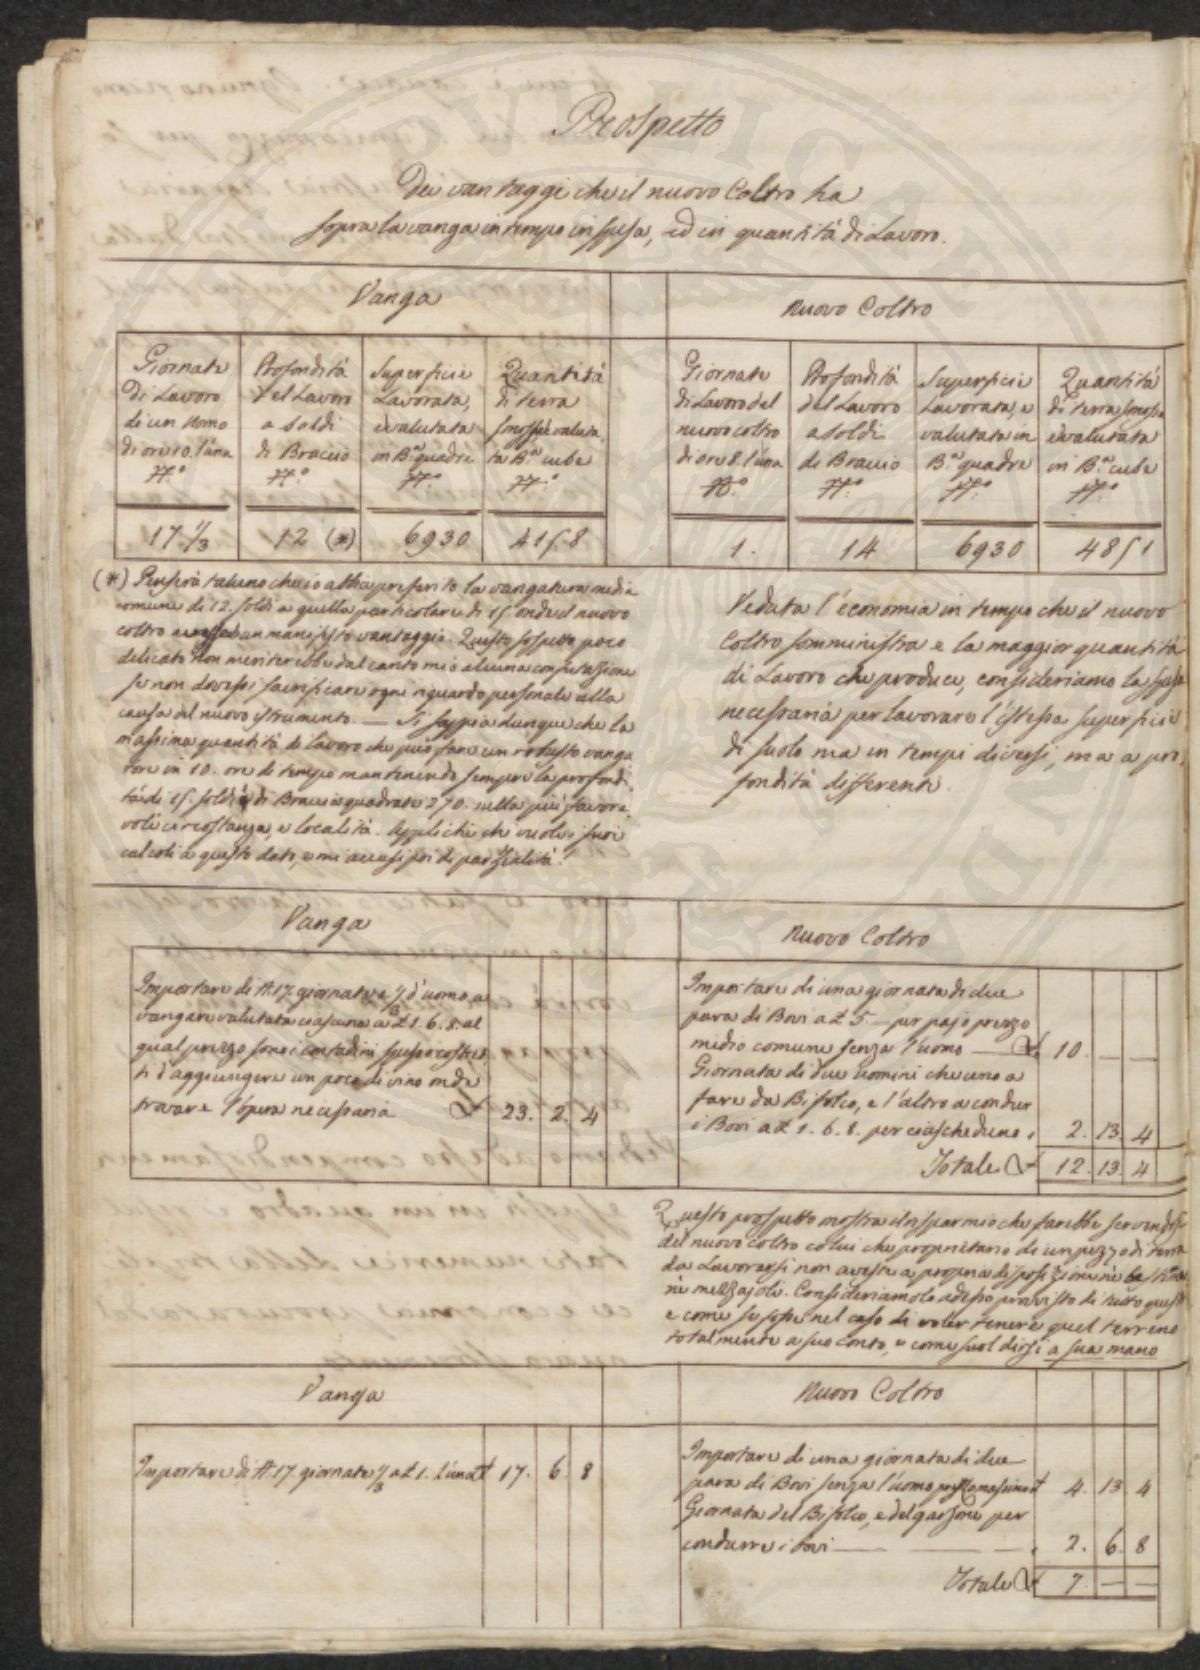 Prospetto
Dei vantaggi che il nuovo Coltro ha
sopra la vanga in tempo in spesa, ed in quantità di Lavoro.
Vanga
Giornate
di Lavoro
di un Uomo
di ore 10. l'una
N.°
Profondità
del Lavoro
a soldi
di Braccio
N.°
Superficie
Lavorata,
e valutata
in B.a quadre
N.°
Quantità
di terra
smossa valuta
ta B.a cube
N.°
17 1/3
12 (*)
6930
4158
Nuovo Coltro
Giornate
di Lavoro del
nuovo coltro
di ore 8. l'una
N.°
Profondità
del Lavoro
a soldi
di Braccio
N.°
Superficie
Lavorata, e
valutata in
B.a quadre
N.°
Quantità
di terra smossa
e valutata
in B.a cube
N.°
1.
14
6930
4851
(*) Penserà taluno che io abbia preferito la vangatura media
comune di 12. soldi a quella particolare di 15 onde il nuovo
coltro avesse un manifesto vantaggio. Questo sospetto poco
delicato non meriterebbe dal canto mio alcuna confutazione
se non dovessi sacrificare ogni riguardo personale alla
causa del nuovo istrumento. — Si sappia dunque che la
massima quantità di lavoro che può fare un robusto vanga
tore in 10. ore di tempo mantenendo sempre la profondi
tà di 15. soldi è di Braccia quadrate 270. nella più favore
vole circostanza, e località. Applichi chi vuole i suoi
calcoli a questo dato, e mi accusi poi di parzialità!
Veduta l'economia in tempo che il nuovo
Coltro somministra e la maggior quantità
di Lavoro che produce, consideriamo la spesa
necessaria per lavorare l'istessa superficie
di suolo ma in tempi diversi, ma a pro
fondità differenti.
Vanga
Importare di N. 17. giornate e 1/3 d'uomo a
vangare valutata ciascuna a £ 1. 6. 8. al
qual prezzo sono i contadini spesso costret
ti d'aggiungere un poco di vino onde
trovare l'opera necessaria £ 23. 2. 4
Nuovo Coltro
Importare di una giornata di due
para di Bovi a £ 5 — per pajo prezzo
medio comune senza l'uomo — £ 10. — —
Giornata di due uomini che uno a
fare da Bifolco, e l'altro a condur
i Bovi a £ 1. 6. 8. per ciascheduno , 2. 13. 4
Totale £ 12. 13. 4
Questo prospetto mostra il risparmio che farebbe servendosi
del nuovo coltro colui che proprietario di un pezzo di terra
da Lavorarsi non avesse a propria disposizione nè bestiame
nè mezzajoli. Consideriamolo adesso provvisto di tutto questo
e come se fosse nel caso di voler tenere quel terreno
totalmente a suo conto, e come suol dirsi a sua mano
Vanga
Importare di N. 17. giornate 1/3 a £ 1. l'una £ 17. 6 8
Nuovo Coltro
Importare di una giornata di due
para di Bovi senza l'uomo £ 4. 13 4
Giornata del Bifolco, e del garzone per
condurre i bovi — — — , 2. 6. 8
Totale £ 7 — —